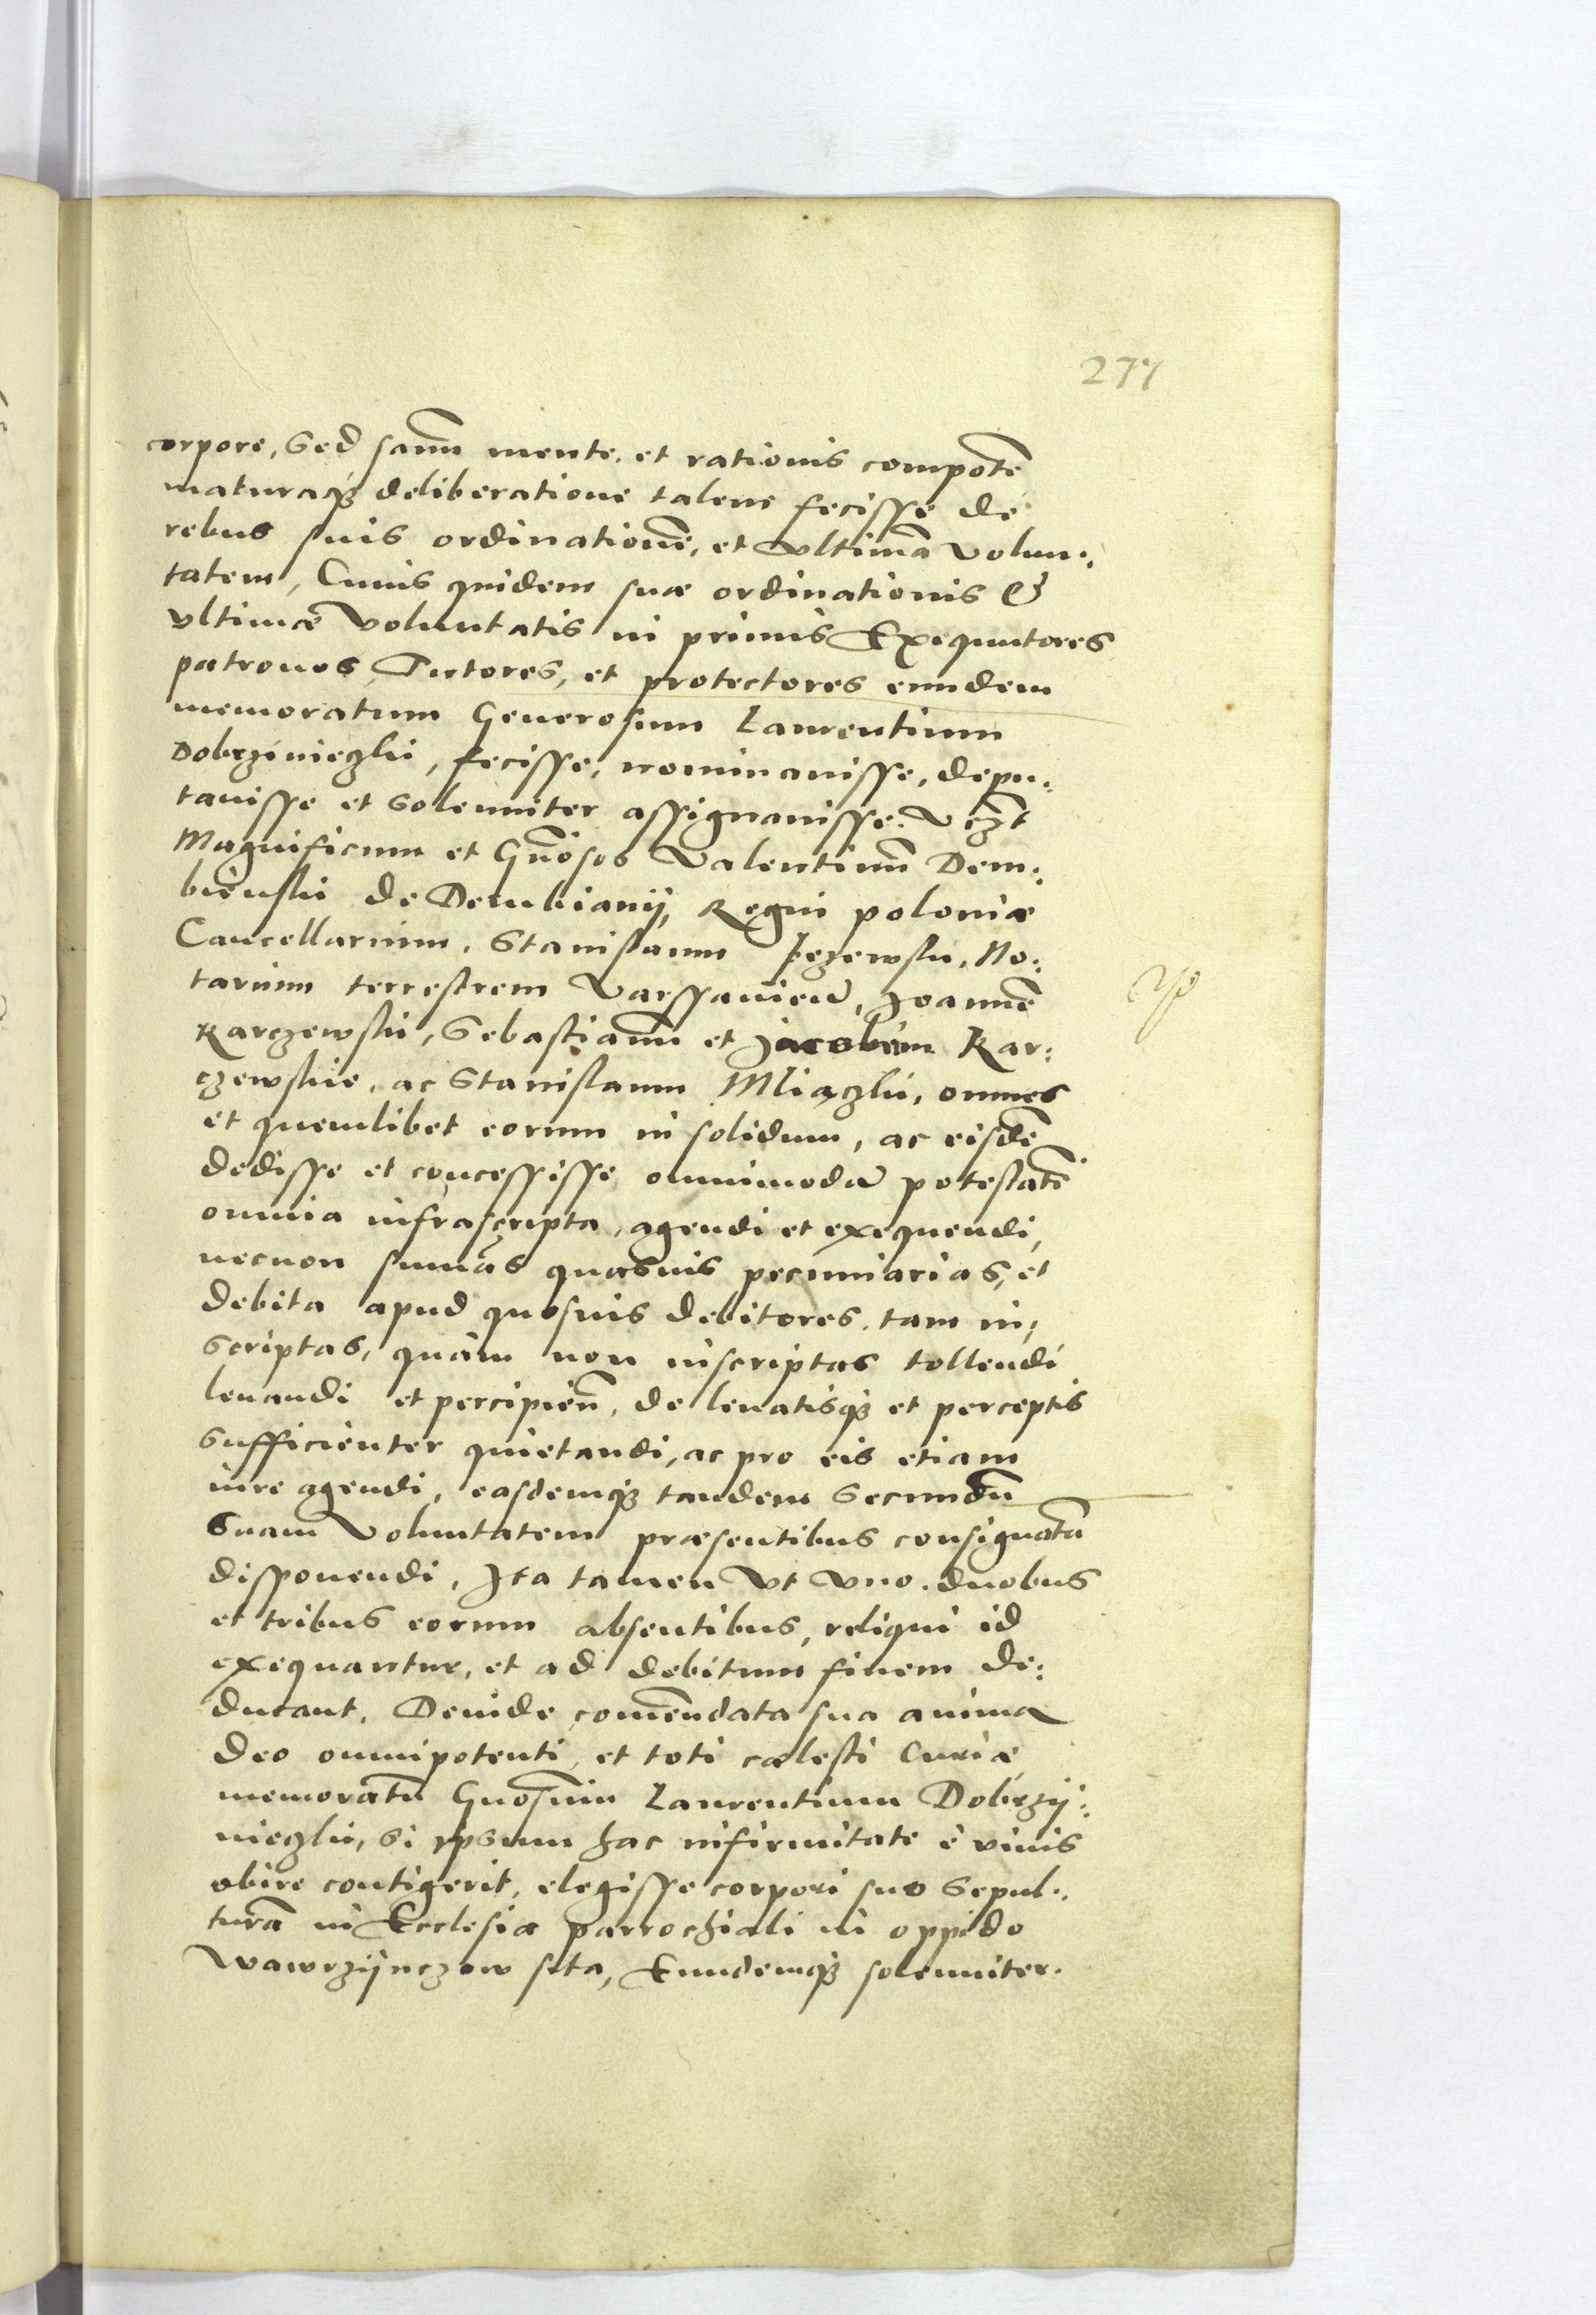 277
corpore, sed sanũ mente, et rationis compotẽ
maturaqȝ deliberatione talem fecisse de
rebus suis ordinationẽ, et vltimã volun:
tatem, Cuius quidem suæ ordinationis &
vltimæ voluntatis in primis Exequutores
patronos, Tutores, et protectores eundem
memoratum Generosum Laurentium
Dobrzinieczki, fecisse, nominauisse, depu:
tauisse et solenniter assignauisse. Vcȝt
Magnificum et Gñosos Valentinũ Dem:
bienski de Dembiany, Regni poloniæ
Cancellarium, Stanislaum Jezewski, No:
tarium terrestrem Varssauien̄, Joannẽ
Karczewski, Sebastianũ et Jacobum Kar:
czewskie, ac Stanislaum Mliaczki, omnes
et quemlibet eorum in solidum, ac eisdẽ
dedisse et concessisse omnimodã potestatẽ
omnia infrascripta, agendi et exequendi,
necnon sum̃as quasuis pecuniarias, et
debita apud quosuis debitores, tam in:
scriptas, quàm non inscriptas tollendi
leuandi et percipien̄, de leuatisqȝ et perceptis
sufficienter quietandi, ac pro eis etiam
iure agendi, easdemqȝ tandem secundũ
suam Voluntatem præsentibus consignatã
disponendi, Ita tamen vt vno, duobus
et tribus eorum absentibus, reliqui id
exequantur, et ad debitum finem de:
ducant. Deinde com̃endata sua anima
Deo omnipotenti, et toti cælesti Curiæ
memoratũ Gnõsum Laurentium Dobrzy:
nieczki, si ipsum hac infirmitate è viuis
obire contigerit, elegisse corpori suo sepul:
turã in Ecclesia parrochiali in oppido
Wawrzynczow sita, Eundemqȝ solenniter.